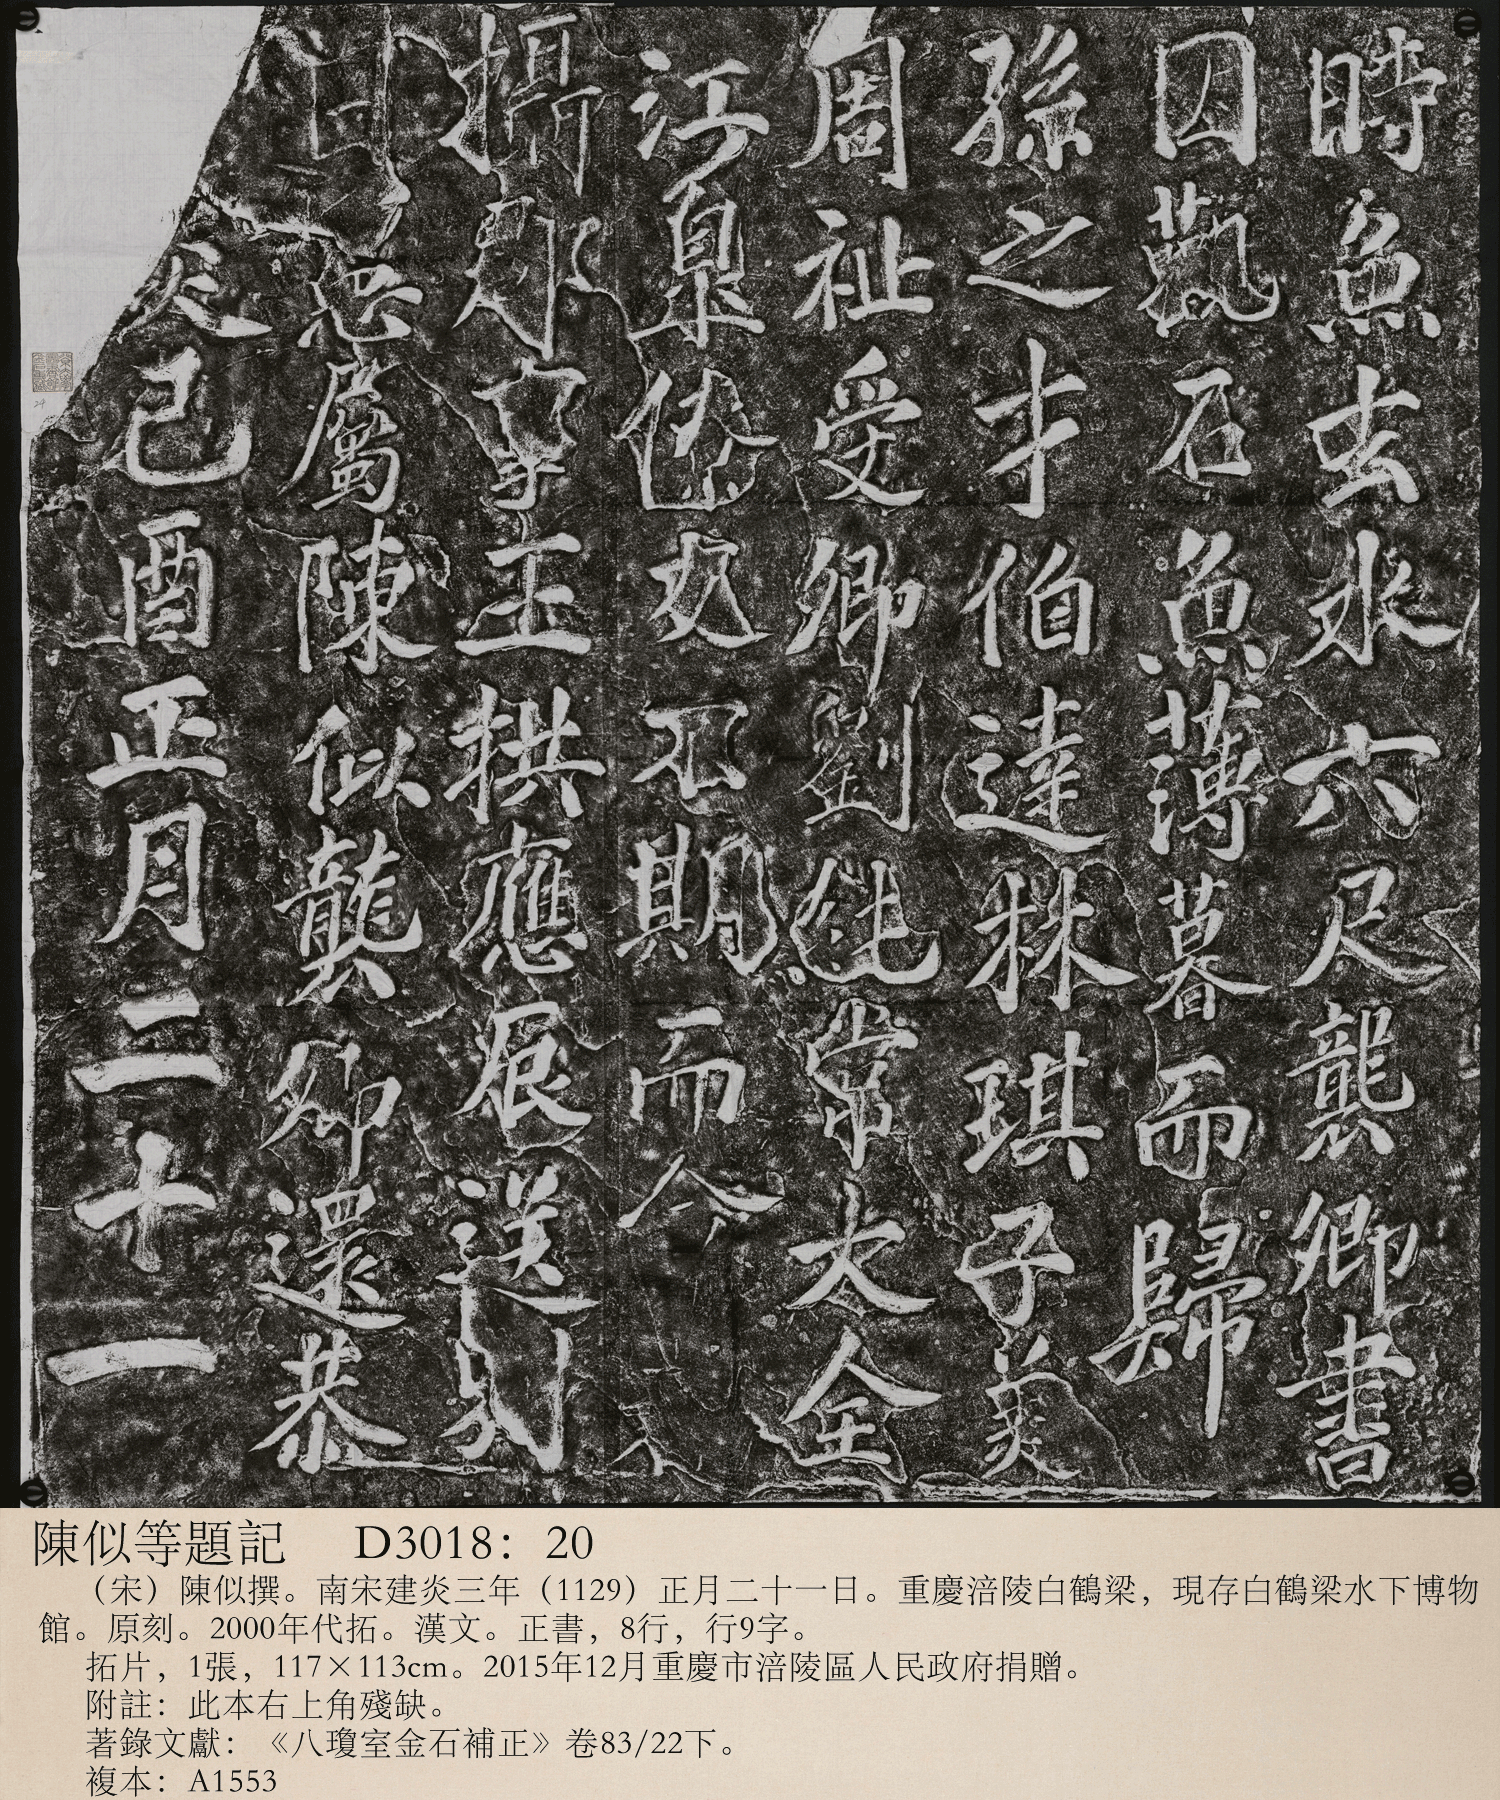 炎己酉正月二十一
日憲屬陳似襲卿還恭
攝郡事王拱應辰送別
江皋僚友不期而
周祉受卿劉純常大全
孫之才伯達林琪子美
因觀石魚薄暮而歸
時魚去水六尺襲卿書
陳似等題記 D3018：20
（宋）陳似撰。南宋建炎三年（1129）正月二十一日。重慶涪陵白鶴梁，現存白鶴梁水下博物
館。原刻。2000年代拓。漢文。正書，8行，行9字。
拓片，1張，117×113cm。2015年12月重慶市涪陵區人民政府捐贈。
附註：此本右上角殘缺。
著錄文獻：《八瓊室金石補正》卷83/22下。
複本：A1553